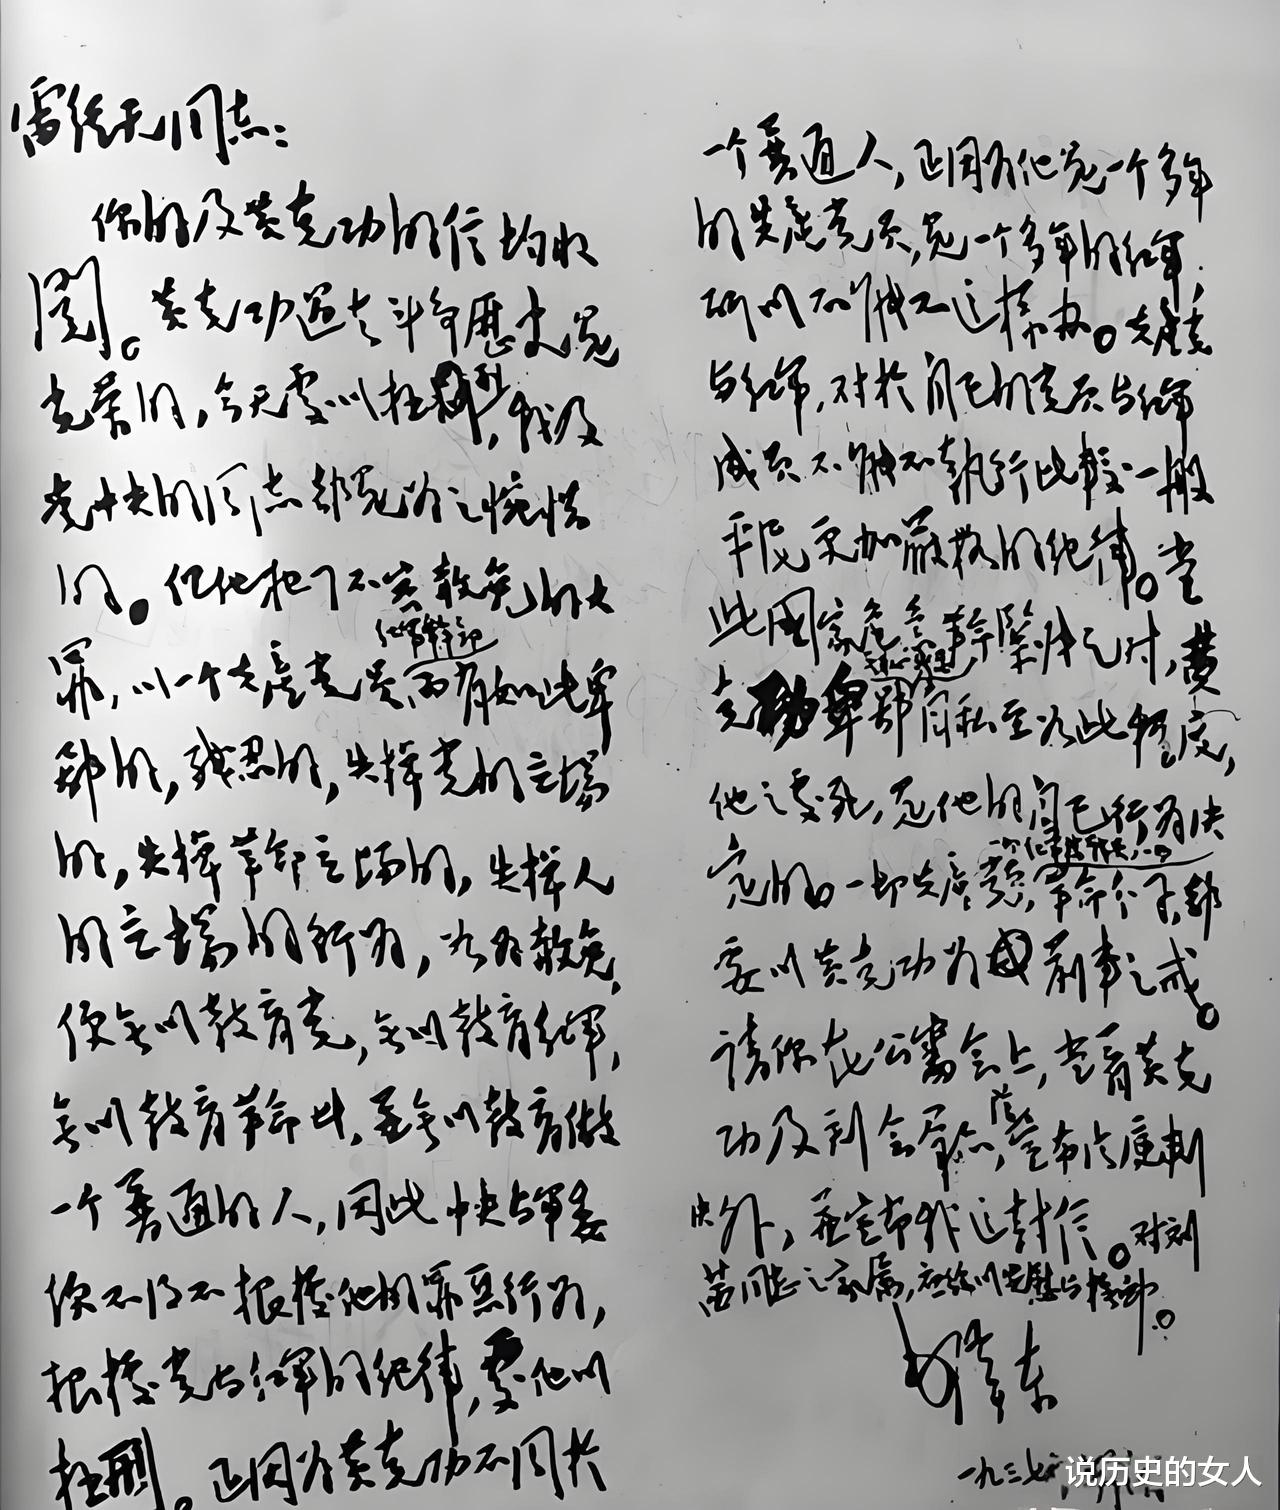 雷经天同志：
你的及黄克功的信均收
阅。黄克功过去斗争歷史是
光荣的，今天处以极刑，我及
党中央的同志都是为之惋惜
的。但他犯了不容赦免的大
罪，以一个共产党员
红军干部
而有如此卑
鄙的，残忍的，失掉党的立场
的，失掉革命立场的，失掉人
的立场的行为，如为赦免，
便无以教育党，无以教育红军，
无以教育革命者，并无以教育做
一个普通的人，因此中央与军委
便不得不根据他的罪恶行为，
根据党与红军的纪律，处他以
极刑。正因为黄克功不同于
一个普通人，正因为他是一个多年
的共产党员，是一个多年的红军，
所以不能不这样办。共产党
与红军，对於自己的党员与红军
成员不能不执行比较一般
平民更加严格的纪律。当
此国家危急革命紧张之时，黄
克功卑鄙
无耻残忍
自私至如此程度，
他之处死，是他的自己行为决
定的。一切共产党员，
一切红军指战员，一切
革命分子，都
要以黄克功为前车之戒。
请你在公审会上，当着黄克
功及到会群众，除宣布法庭判
决外，并宣布我这封信。对刘
茜同志之家属，应给以安慰与抚恤。
毛泽东
一九三七年
说历史的女人